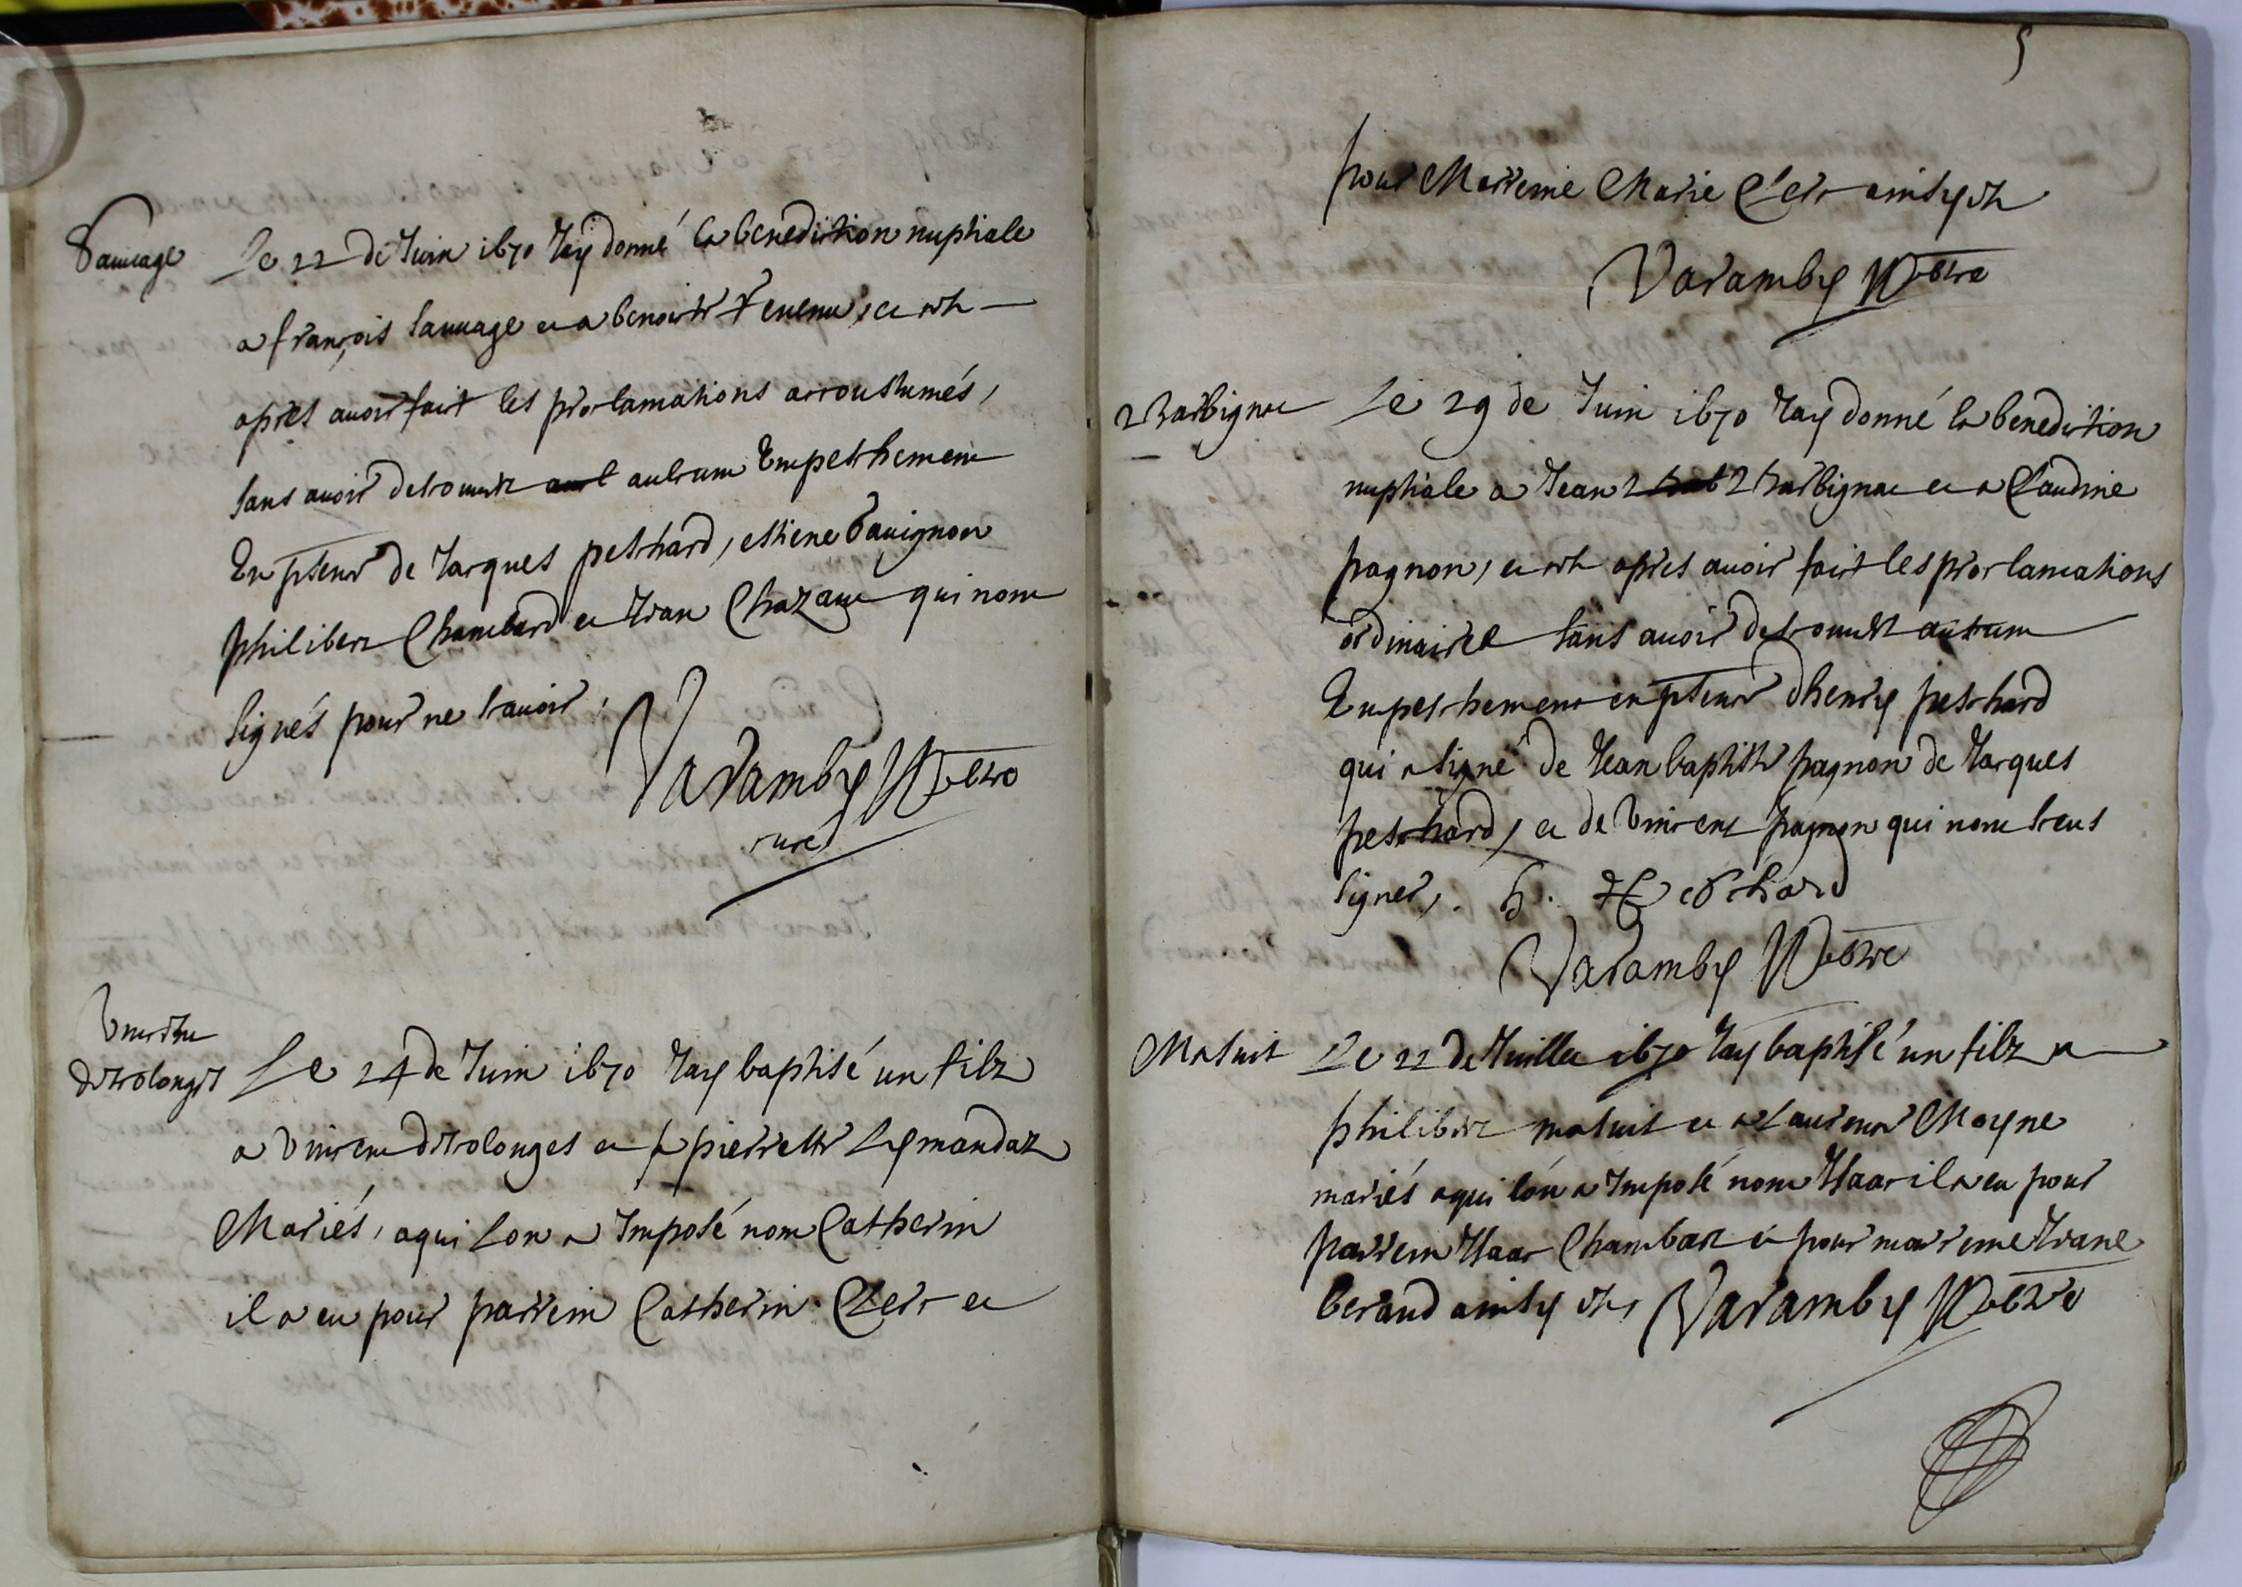 Sauuage
Le 22 de Juin 1670 Jay donné la benediction nuptiale
a françois sauuage et a benoiste et ce
apres auoir fait les proclamations accoustumés,
sans auoir descouuert aucum Empeschement
En pseur de Jacques peschard, estiene Sauignon
philibert Chambard et Jean Chazaut qui nont
signés pour ne scauoir,
Varamby pbtre
curé
Vincent
destolonges
Le 24 de Juin 1670 Jay baptisé un filz
a Vincent destolonges et a pierrette Lymandaz
Mariés, a qui lon a Imposé nom Catherin
il a eu pour parrein Catherin Clerc et
5
pour Marreine Marie Clerc ainsy est
Varamby pbtre
Barbignac
Le 29 de Juin 1670 Jay donné la benediction
nuptiale a Jean Barbignac et a Claudine
pagnon, et ce apres auoir fait les proclamations
ordinaires sans auoir descouuert aucum
Empeschement en pseur dhenry peschard
qui a signé de Jean baptiste pagnon de Jacques
peschard, et de Vincent pagnon qui nont sceus
signer,. h. peschard
Varamby pbtre
Matuit
Le 22 de Juillet 1670 Jay baptisé un filz a
philibert matuit et a Laurence Moyne
mariés a qui lon a Imposé nom Isaac il a eu pour
parrein Isaac Chambart et pour marreine Jeane
beraud ainsy est, Varamby pbtre